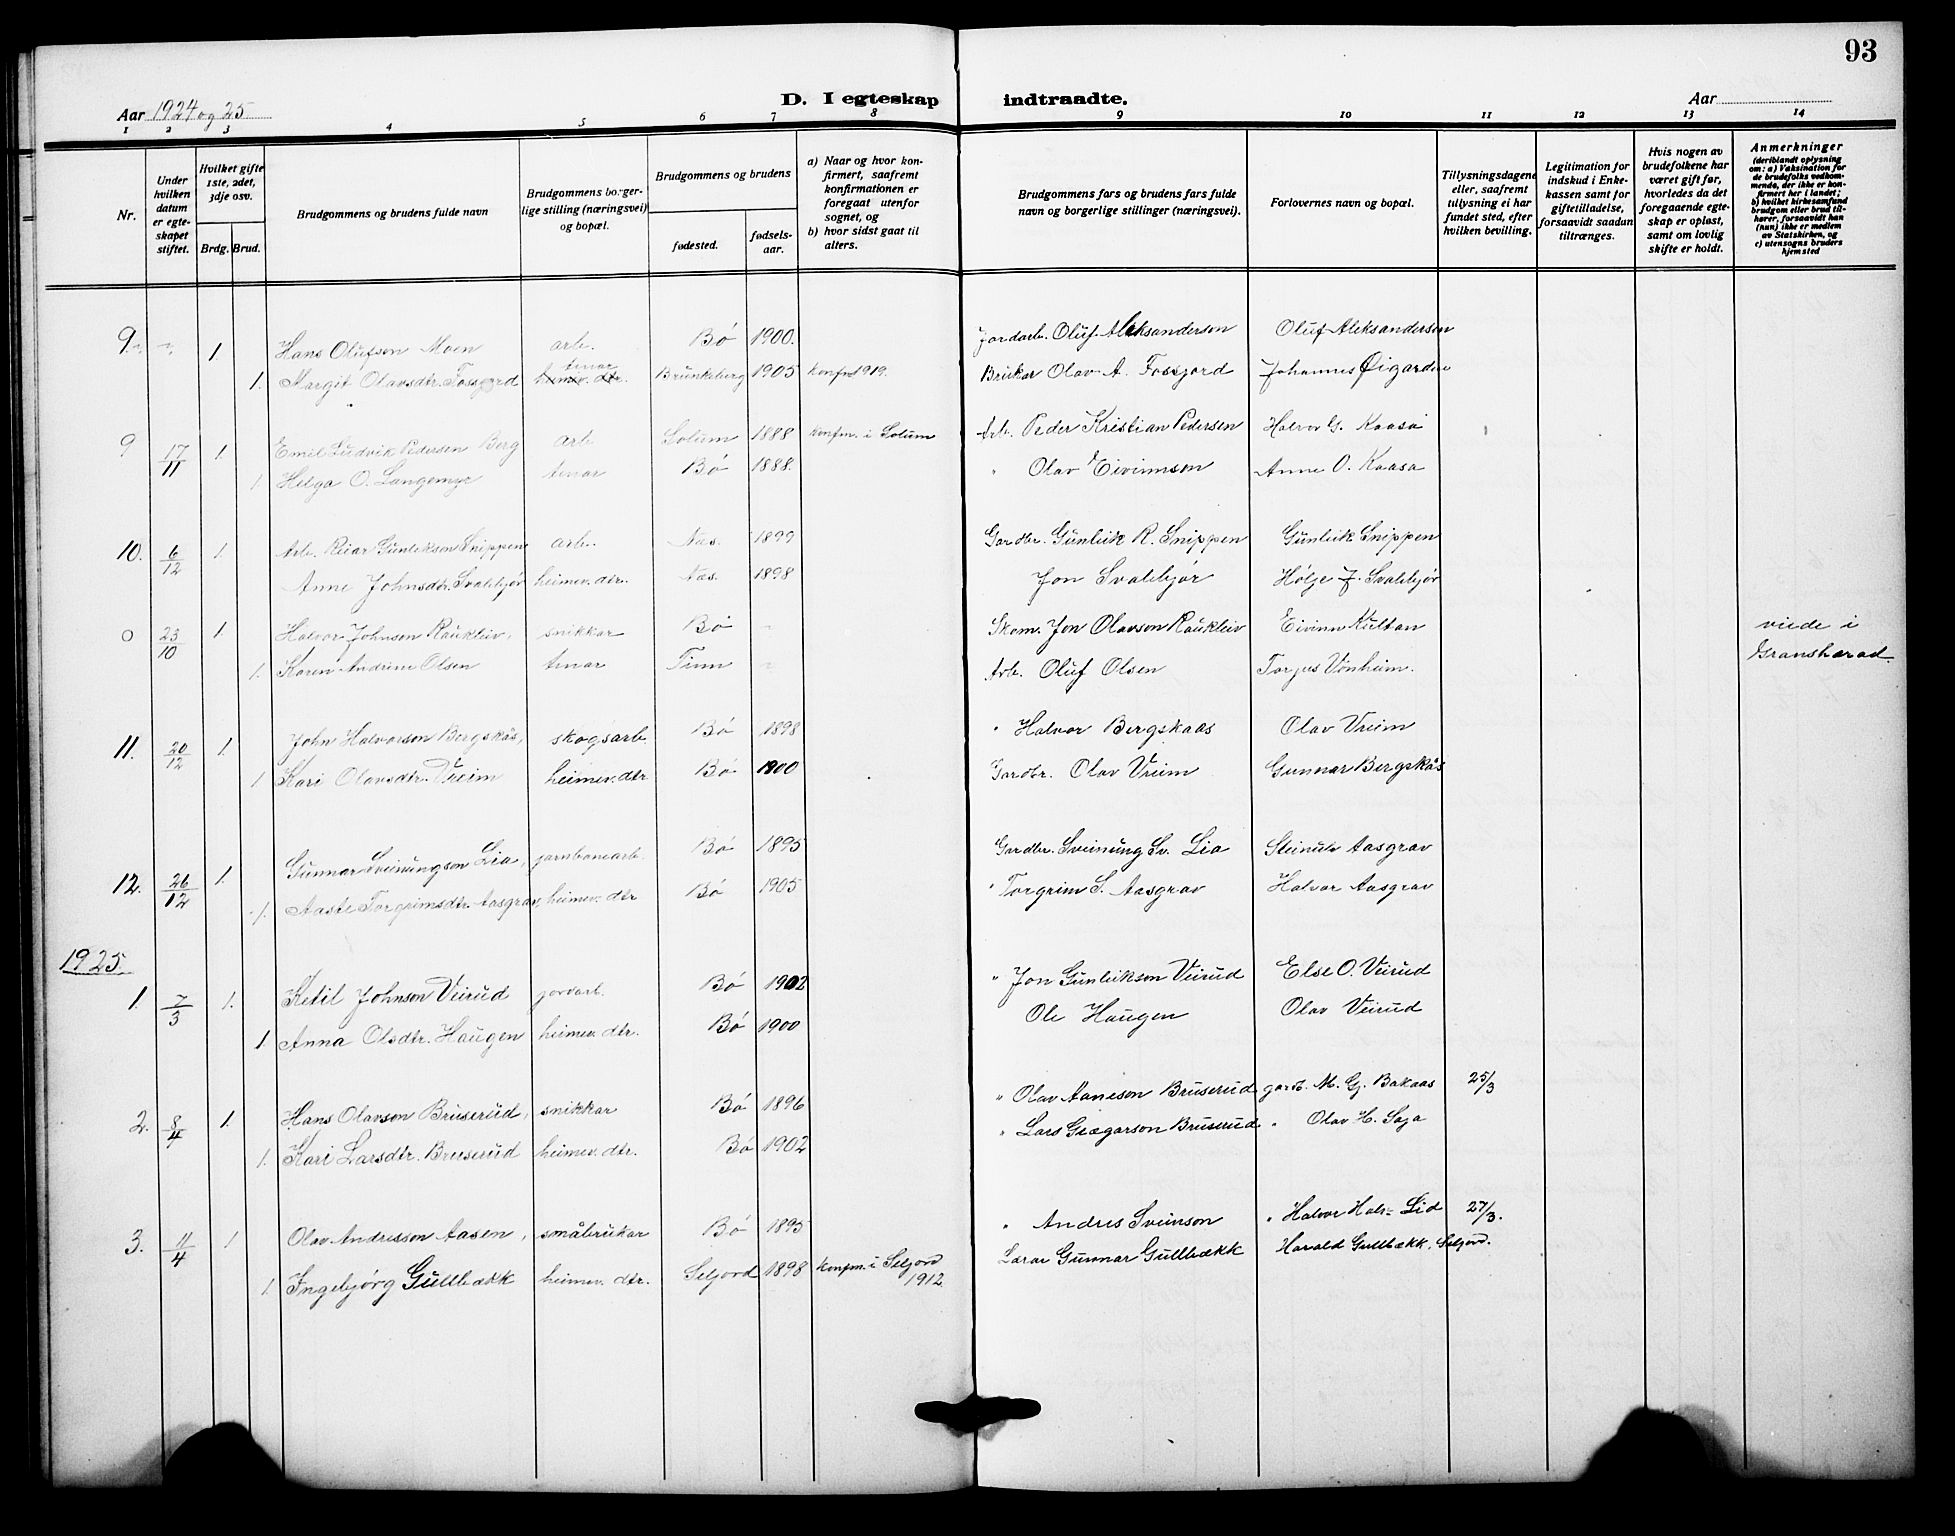 93
Aar 1924 og 25
D. I egteskap indtraadte.
Aar
1 2 3 4 5 6 7 8 9 10 11 12 13 14
Nr.
Under hvilken datum er egte-skapet stiftet.
Hvilket gifte 1ste, 2det, 3dje osv.
Brdg. Brud.
Brudgommens og brudens fulde navn
Brudgommens borger-lige stilling (næringsvei) og bopæl.
Brudgommens og brudens
fødested. fødsels-aar.
a) Naar og hvor kon-firmert, saafremt konfirmationen er foregaat utenfor sognet, og
b) hvor sidst gaat til alters.
Brudgommens fars og brudens fars fulde navn og borgerlige stillinger (næringsvei).
Forlovernes navn og bopæl.
Tillysningsdagene eller, saafremt tillysning ei har fundet sted, efter hvilken bevilling.
Legitimation for indskud i Enke-kassen samt for giftetilladelse, forsaavidt saadan tiltrænges.
Hvis nogen av brudefolkene har været gift før, hvorledes da det foregaaende egte-skap er opløst, samt om lovlig skifte er holdt.
Anmerkninger (deriblandt oplysning om: a) Vaksination for de brudefolks vedkom-mende, der ikke er kon-firmert her i landet; b) hvilket kirkesamfund brudgom eller brud til-hører, forsaavidt han (hun) ikke er medlem av Statskirken, og c) utensogns bruders hjemsted
9. 1 Hans Olufson Moen arb. Bø 1900. Jordarb. Oluf Aleksanderson Oluf Aleksanderson
1. Margit Olavsdtr. Fossjord heimev. dtr. tenar Brunkeberg 1905 konf. 1919. Brukar Olav A. Fossjord Johannes Øigarden
9 17/11 1. Emil Ludvik Pedersen Berg arb. Solum 1888 konfm. i Solum Arb. Peder Kristian Pedersen Halvor G. Kaasa
1. Helga O. Langemyr tenar Bø 1888. " Olav Eivinnson Anne O. Kaasa
10. 6/12 1. Arb. Reiar Gunleikson Snippen arb. Næs. 1899 Gardbr. Gunleik R. Snippen Gunleik Snippen
Anne Johnsdtr. Svalebjør heimev. dtr. Næs. 1898 Jon Svalebjør Hølje J. Svalebjør
0 23/10 1. Halvor Johnson Raukleiv, snikkar Bø " Skom. Jon Olavson Raukleiv Eivinn Kultan viede i
1. Karen Andrine Olsen tenar Tinn " Arb. Oluf Olsen Torjus Vonheim. Gransherad.
11. 20/12 1. John Halvorson Bergskås, skogsarb. Bø 1898 " Halvor Bergskaas Olav Vreim
1. Kari Olavsdtr. Vreim heimev. dtr Bø 1900 Gardbr. Olav Vreim Gunnar Bergskås
12. 26/12 1. Gunnar Sveinungson Lia, jarnbanearb. Bø 1895 Gardbr. Sveinung Sv. Lia Steinule Aasgrav
1. Aaste Torgrimsdtr. Aasgrav, heimev. dtr Bø 1905 " Torgrim S. Aasgrav Halvor Aasgrav
1925.
1. 7/3 1. Ketil Johnson Veirud jordarb. Bø 1902 " Jon Gunleikson Veirud Else O. Veirud
1. Anna Olsdtr. Haugen heimev. dtr. Bø 1900 Ole Haugen Olav Veirud
2. 8/4 1. Hans Olavson Bruserud, snikkar Bø 1896 " Olav Aaneson Bruserud gardb. M. Gj. Bakaas 25/3
1. Kari Larsdtr. Bruserud heimev. dtr. Bø 1902 " Lars Gregarson Bruserud " Olav H. Saga
3. 11/4 1 Olav Andresson Aasen, småbrukar Bø 1895 " Andres Sveinson " Halvor Halv. Lid 27/3.
1. Ingebjørg Gullbækk heimev. dtr. Seljord 1898 konfm. i Seljord 1912. Lærar Gunnar Gullbækk Harald Gullbækk, Seljord.